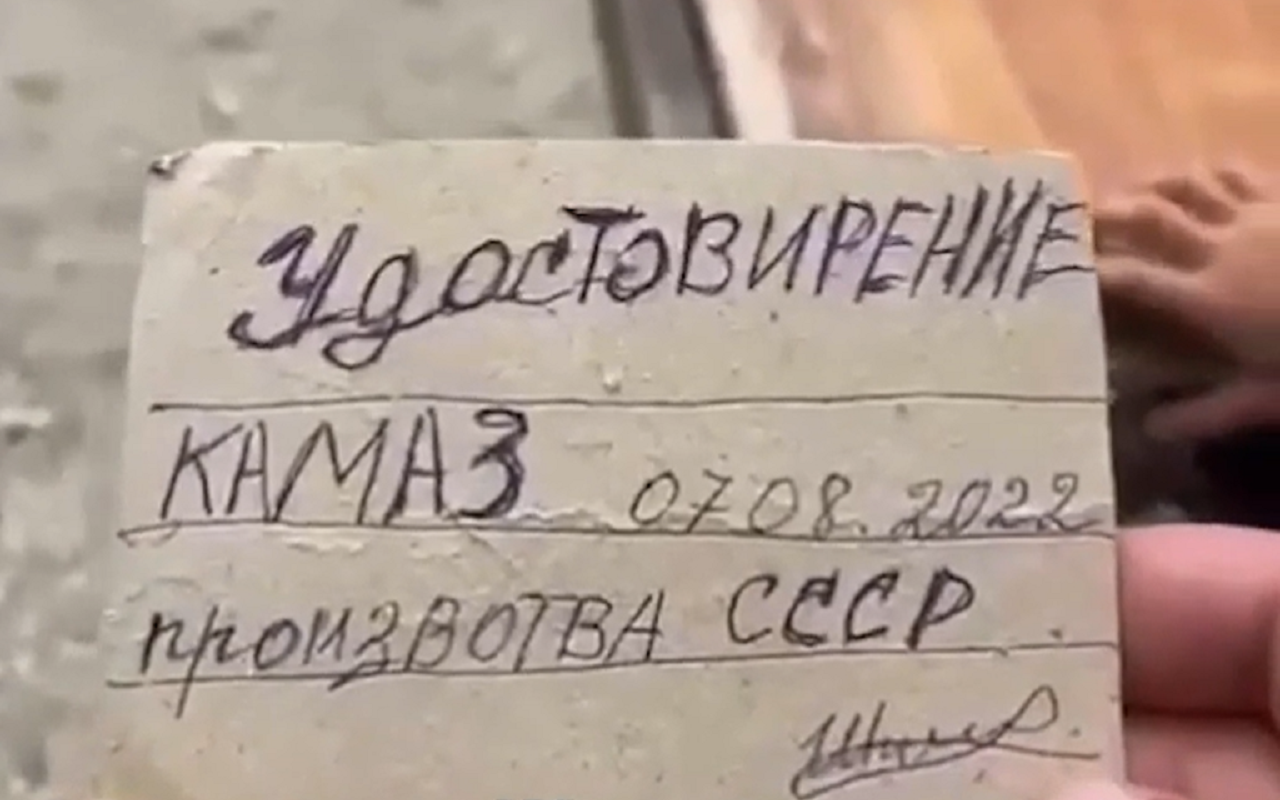 УдостоВИРЕНИЕ
КАМАЗ 07 08. 2022
произвотвА СССР